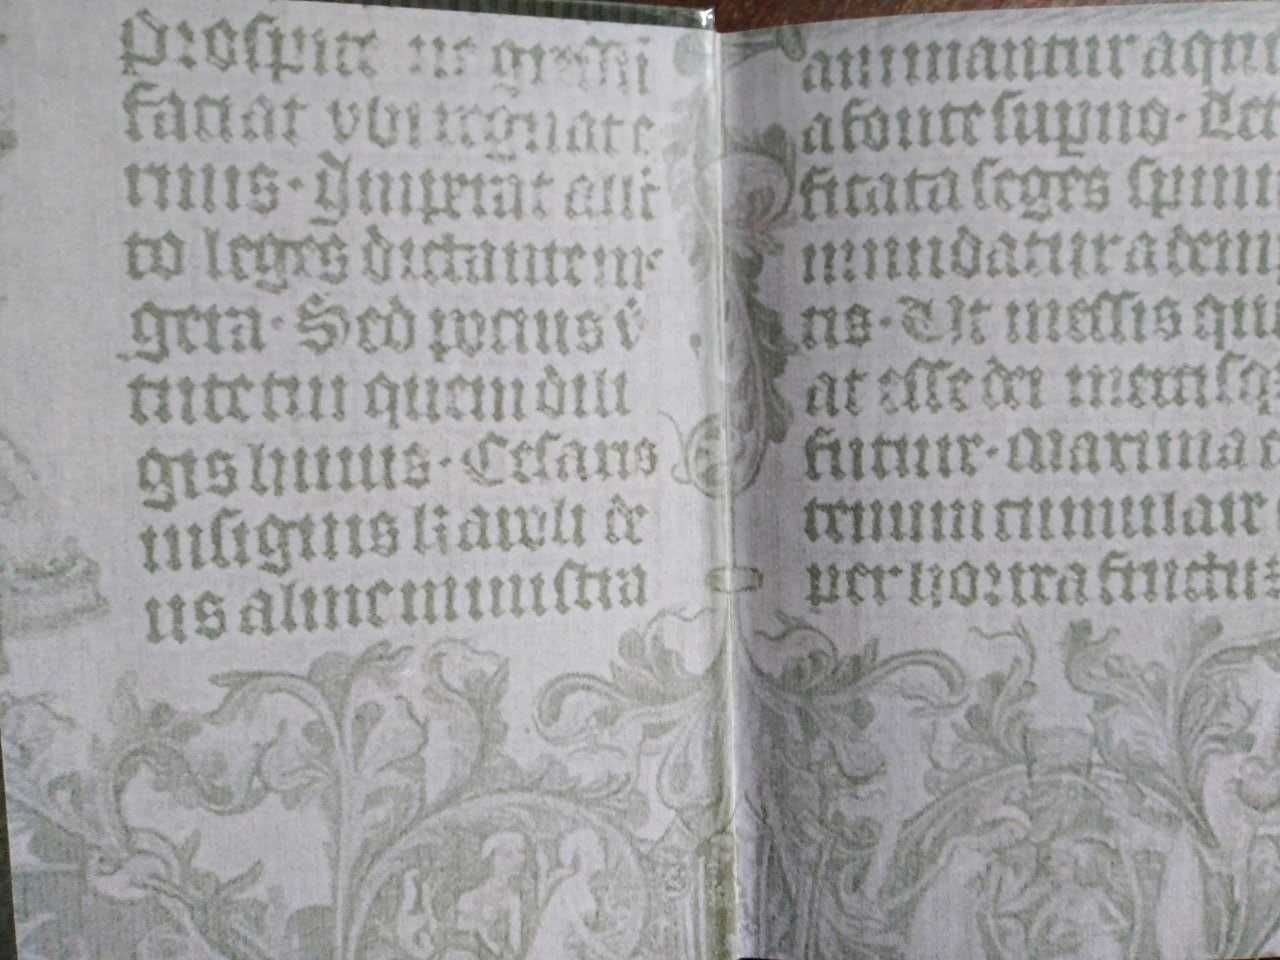 prospice ne gressū
faciat vbi regnat e
rinis · Imperat alle
to leges dictante me
gera · Sed pocius v̄
tute tui quem dili
gis huius · Cesaris
insignis karoli de
us alme ministra
animantur aque
a fonte suꝑno · Leti
ficata seges spini
mundatur adem
tis · Ut messis que
at esse dei mercisqꝫ
future · Maxima c
tenum cumulare
per horrea fructus